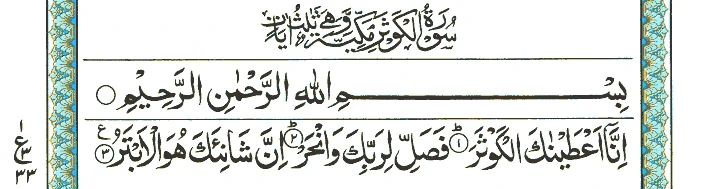 سُوْرَةُ الْكَوْثَرِ مَكِّيَّةٌ وَّهِيَ ثَلٰثُ اٰيَاتٍ
بِسْمِ اللهِ الرَّحْمٰنِ الرَّحِيْمِ ○
اِنَّاۤ اَعْطَيْنٰكَ الْكَوْثَرَ ؕ﴿۱﴾ فَصَلِّ لِرَبِّكَ وَانْحَرْ ؕ﴿۲﴾ اِنَّ شَانِئَكَ هُوَ الْاَبْتَرُ ﴿۳﴾ ع
۱
ع ۳
۳۳